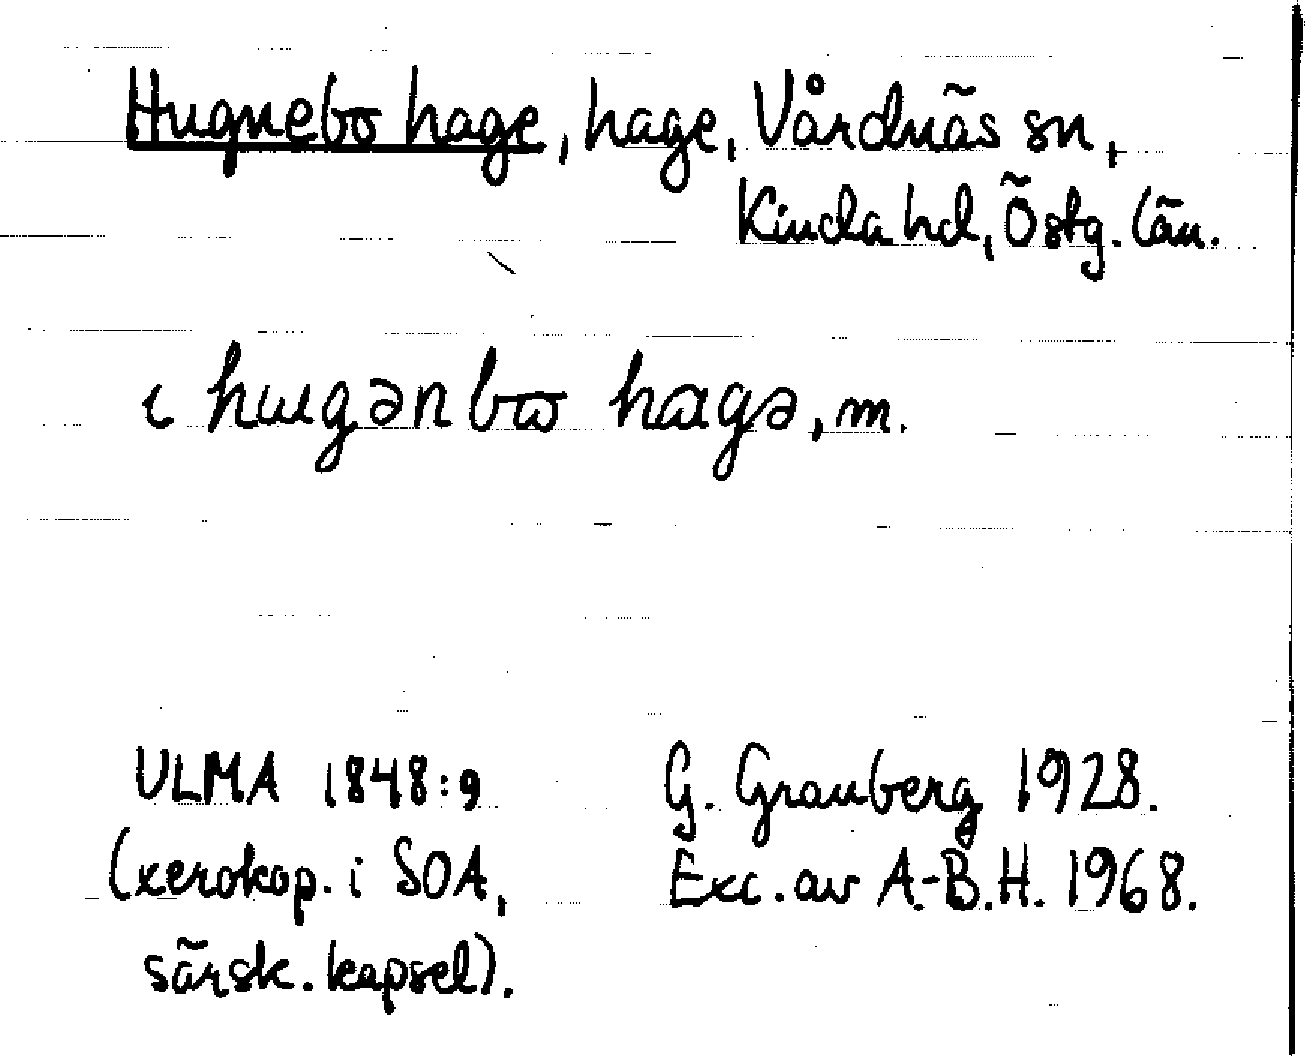 Hugnebo hage, hage, Vårdnäs sn,
Kinda hd, Östg. län.
ɩ hɯgənbɷ hagə, m.
ULMA 1848:9 G. Granberg 1928.
(xerokop. i SOA, Exc. av A.-B.H. 1968.
särsk. kapsel).